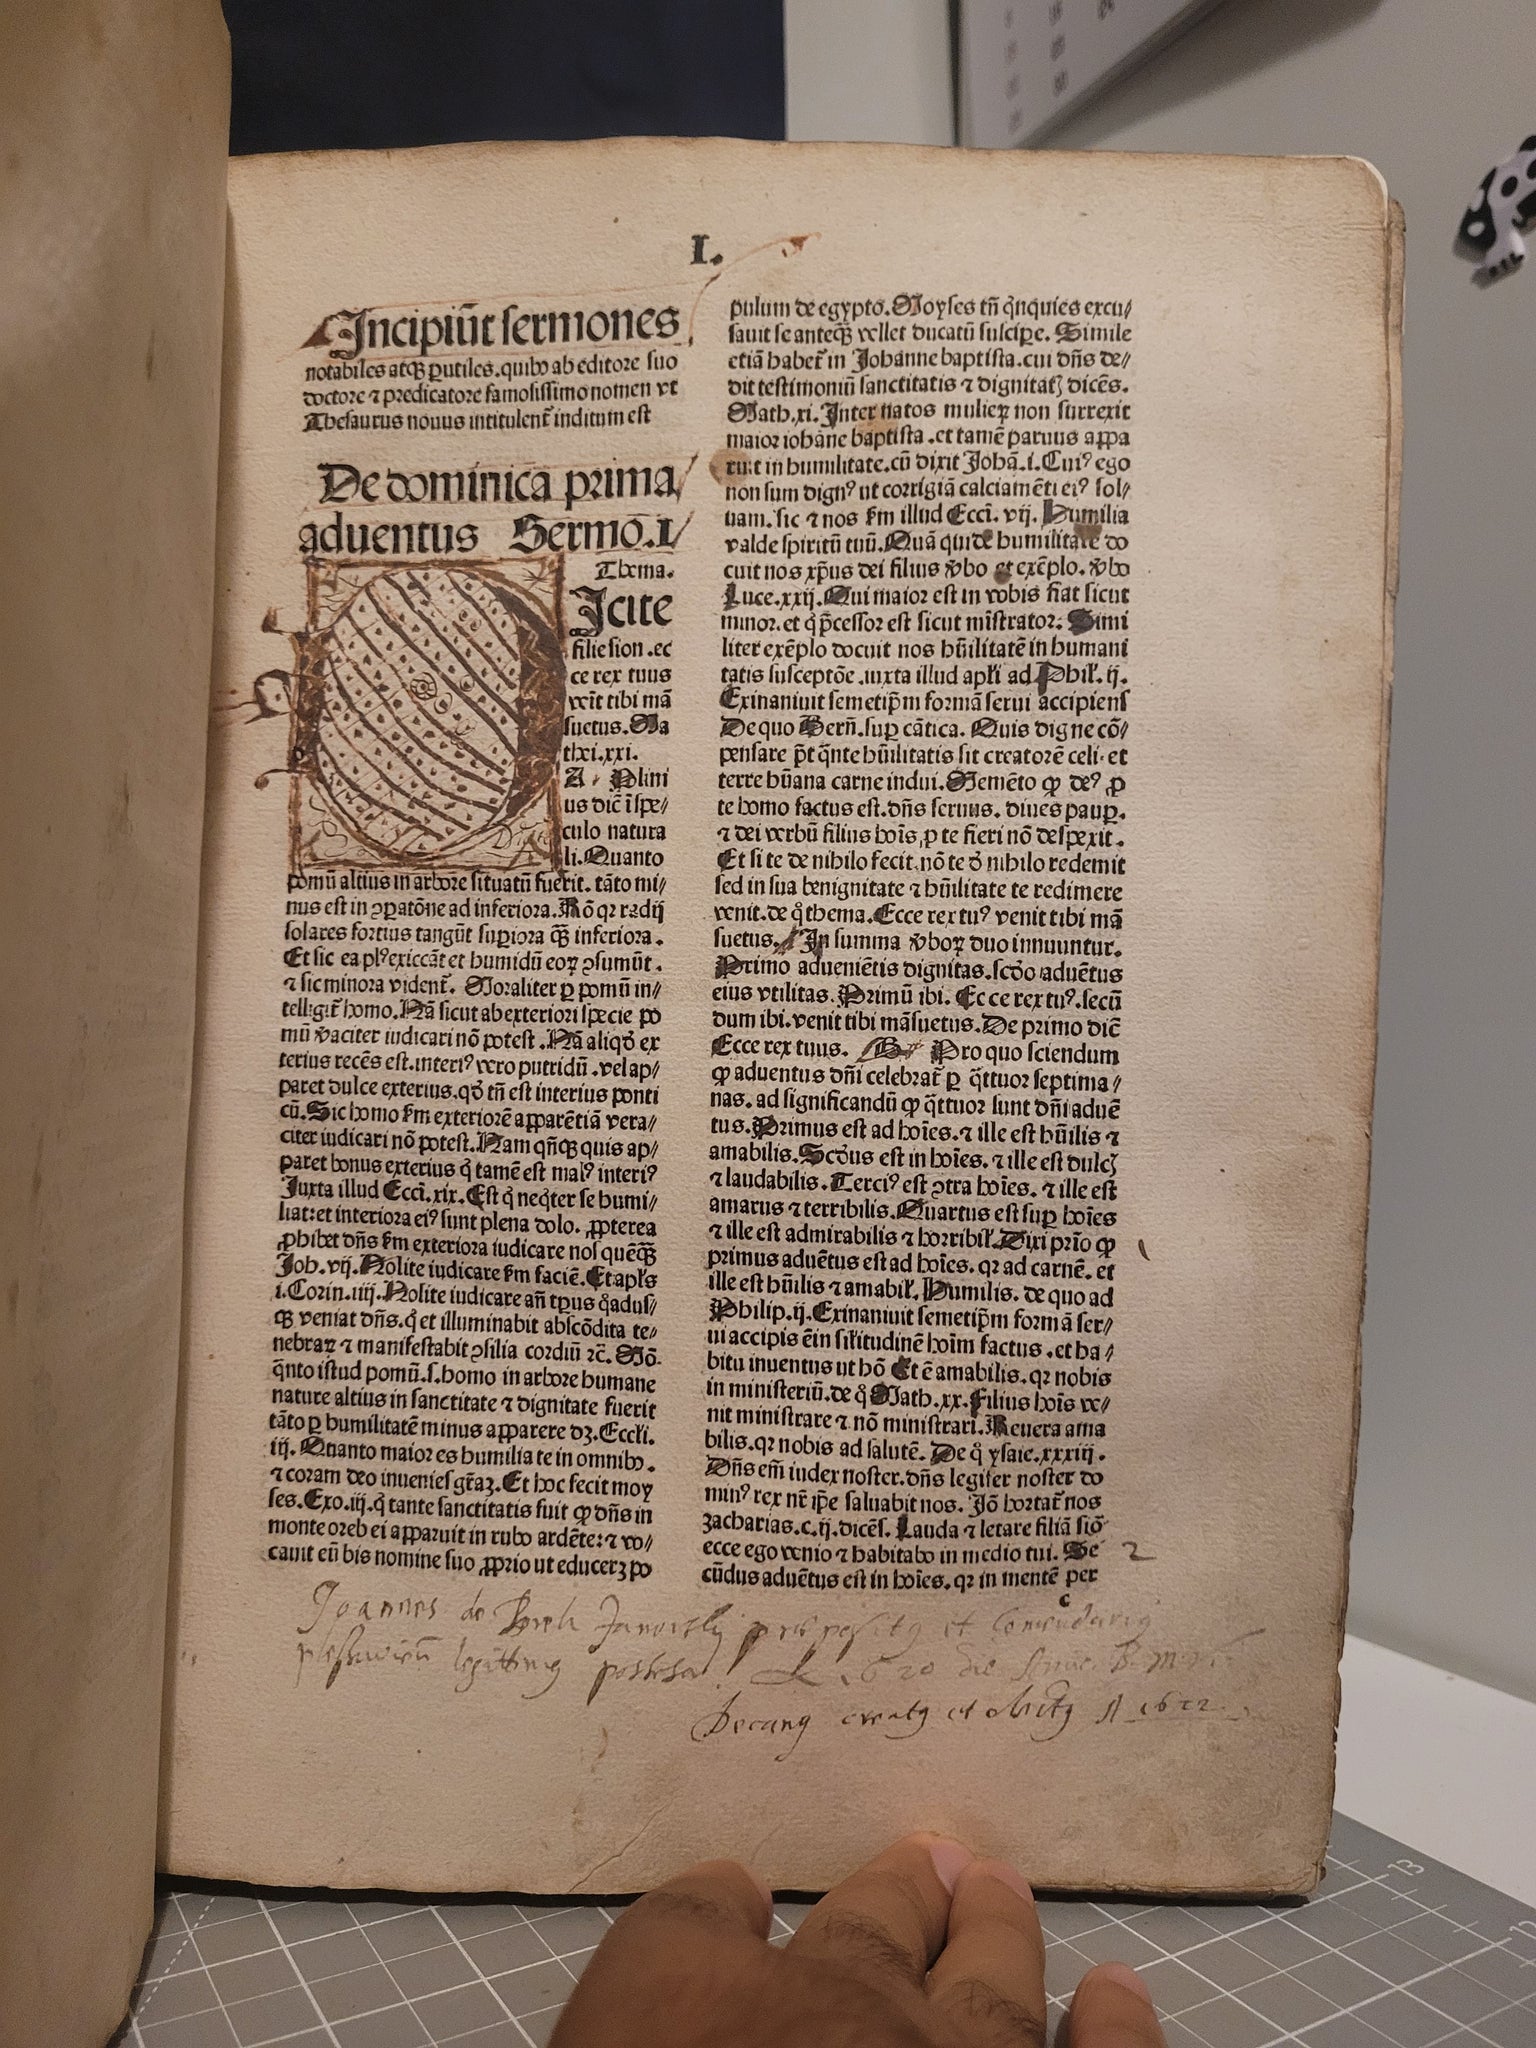 I.
Incipiūt sermones
notabiles atqꝫ ꝑutiles. quibꝰ ab editore suo
doctore ⁊ predicatore famosissimo nomen vt
Thesaurus nouus intitulent̄ inditum est
De dominica prima
aduentus Sermo. I
Thema.
Icite
filie sion. ec
ce rex tuus
veīt tibi mā
suetus. Ma
thei. xxi.
A Plini
us dic̄ ī spe⸗
culo natura
li. Quanto
pomū altius in arbore situatū fuerit. tāto mi⸗
nus est in ꝯꝑatōne ad inferiora. Rō qꝛ radij
solares fortius tangūt suꝑiora qꝫ̄ inferiora.
Et sic ea plꝰ exiccāt et humidū eoꝝ ꝯsumūt.
⁊ sic minora vident̄. Moraliter ꝑ pomū in⸗
telligit̄ homo. Nā sicut ab exteriori specie po
mū v̄aciter iudicari nō potest. Nā aliqd̄ ex
terius recēs est. interiꝰ vero putridū. vel ap⸗
paret dulce exterius. qd̄ tn̄ est interius ponti
cū. Sic homo ẜm exteriorē apparētiā vera⸗
citer iudicari nō potest. Nam qn̄qꝫ quis ap⸗
paret bonus exterius q̇ tamē est malꝰ interiꝰ
Juxta illud Ecci. xix. Est q̇ neqt̄er se humi⸗
liat: et interiora eiꝰ sunt plena dolo. ꝓpterea
ꝓhibet dn̄s ẜm exteriora iudicare nos quēqꝫ̄
Joh. vij. Nolite iudicare ẜm faciē. Et apl̄s
i. Corin. iiij. Nolite iudicare an̄ tp̄us q̇adus⸗
qꝫ veniat dn̄s. q̇ et illuminabit abscōdita te⸗
nebraꝝ ⁊ manifestabit ꝯsilia cordiū ⁊c̄. Mō
q̄nto istud pomū. s. homo in arbore humane
nature altius in sanctitate ⁊ dignitate fuerit
tāto ꝑ humilitatē minus apparere dꝫ. Eccli.
iij. Quanto maior es humilia te in omnibꝰ.
⁊ coram deo inuenies gr̄aꝫ. Et hoc fecit moy
ses. Exo. iij. q̇ tante sanctitatis fuit ꝙ dn̄s in
monte oreb ei apparuit in rubo ardēte: ⁊ vo⸗
cauit eū bis nomine suo ꝓprio ut educerꝫ po
pulum de egypto. Moyses tn̄ q̇nquies excu⸗
sauit se anteqꝫ̄ vellet ducatū susciꝑe. Simile
etiā habet̄ in Johanne baptista. cui dn̄s de⸗
dit testimoniū sanctitatis ⁊ dignitatꝭ dicēs.
Math. xi. Inter natos mulieꝝ non surrexit
maior iohāne baptista. et tamē paruus appa
ruit in humilitate. cū dixit Johā. i. Cuiꝰ ego
non sum dignꝰ ut corrigiā calciamēti eiꝰ sol⸗
uam. sic ⁊ nos ẜm illud Ecci. vij. Humilia
valde spiritū tuū. Quā quidē humilitatē do
cuit nos xp̄us dei filius v̄bo et exēplo. v̄bo
Luce. xxij. Qui maior est in vobis fiat sicut
minor. et q̇ p̄cessor est sicut mīstrator. Simi
liter exēplo docuit nos hūilitatē in humani
tatis susceptōe. iuxta illud apl̄i ad Phil̄. ij.
Exinaniuit semetip̄m formā serui accipiens
De quo Bern̄. suꝑ cātica. Quis digne cō⸗
pensare p̄t q̄nte hūilitatis sit creatorē celi. et
terre hūana carne indui. Memēto ꝙ deꝰ ꝓ
te homo factus est. dn̄s seruus. diues pauꝑ.
⁊ dei verbū filius hoīs, ꝓ te fieri nō despexit.
Et si te de nihilo fecit. nō te d̄ nihilo redemit
sed in sua benignitate ⁊ hūilitate te redimere
venit. de q̇ thema. Ecce rex tuꝰ venit tibi mā
suetus. In summa v̄boꝝ duo innuuntur.
Primo adueniētis dignitas. scd̄o aduētus
eius vtilitas. Primū ibi. Ecce rex tuꝰ. secū
dum ibi. venit tibi māsuetus. De primo dic̄
Ecce rex tuus. B Pro quo sciendum
ꝙ aduentus dn̄i celebrat̄ ꝑ q̄ttuor septima⸗
nas. ad significandū ꝙ q̄ttuor sunt dn̄i aduē
tus. Primus est ad hoīes. ⁊ ille est hūilis ⁊
amabilis. Scd̄us est in hoīes. ⁊ ille est dulcꝭ
⁊ laudabilis. Terciꝰ est ꝯtra hoīes. ⁊ ille est
amarus ⁊ terribilis. Quartus est suꝑ hoīes
⁊ ille est admirabilis ⁊ horribil̄. Dixi prīo ꝙ
primus aduētus est ad hoīes. qꝛ ad carnē. et
ille est hūilis ⁊ amabil̄. Humilis. de quo ad
Philip. ij. Exinaniuit semetip̄m formā ser⸗
ui accipiēs in sil̄itudinē hoīm factus. et ha⸗
bitu inuentus ut hō Et ē amabilis. qꝛ nobis
in ministeriū. de q̇ Math. xx. Filius hoīs ve⸗
nit ministrare ⁊ nō ministrari. Reuera ama
bilis. qꝛ nobis ad salutē. De q̇ ysaie. xxxiij.
Dn̄s em̄ iudex noster. dn̄s legifer noster do
minꝰ rex nr̄ ip̄e saluabit nos. Jō hortat̄ nos
zacharias. c. ij. dicēs. Lauda ⁊ letare filiā siō
ecce ego venio ⁊ habitabo in medio tui. Se 2
cūdus aduētus est in hoīes. qꝛ in mentē per
c
Joannes de Janorsky præpositꝰ et Comendariꝰ
legittimꝰ possessor 1620 die B. M. V.
Decanꝰ creatꝰ et A 1622